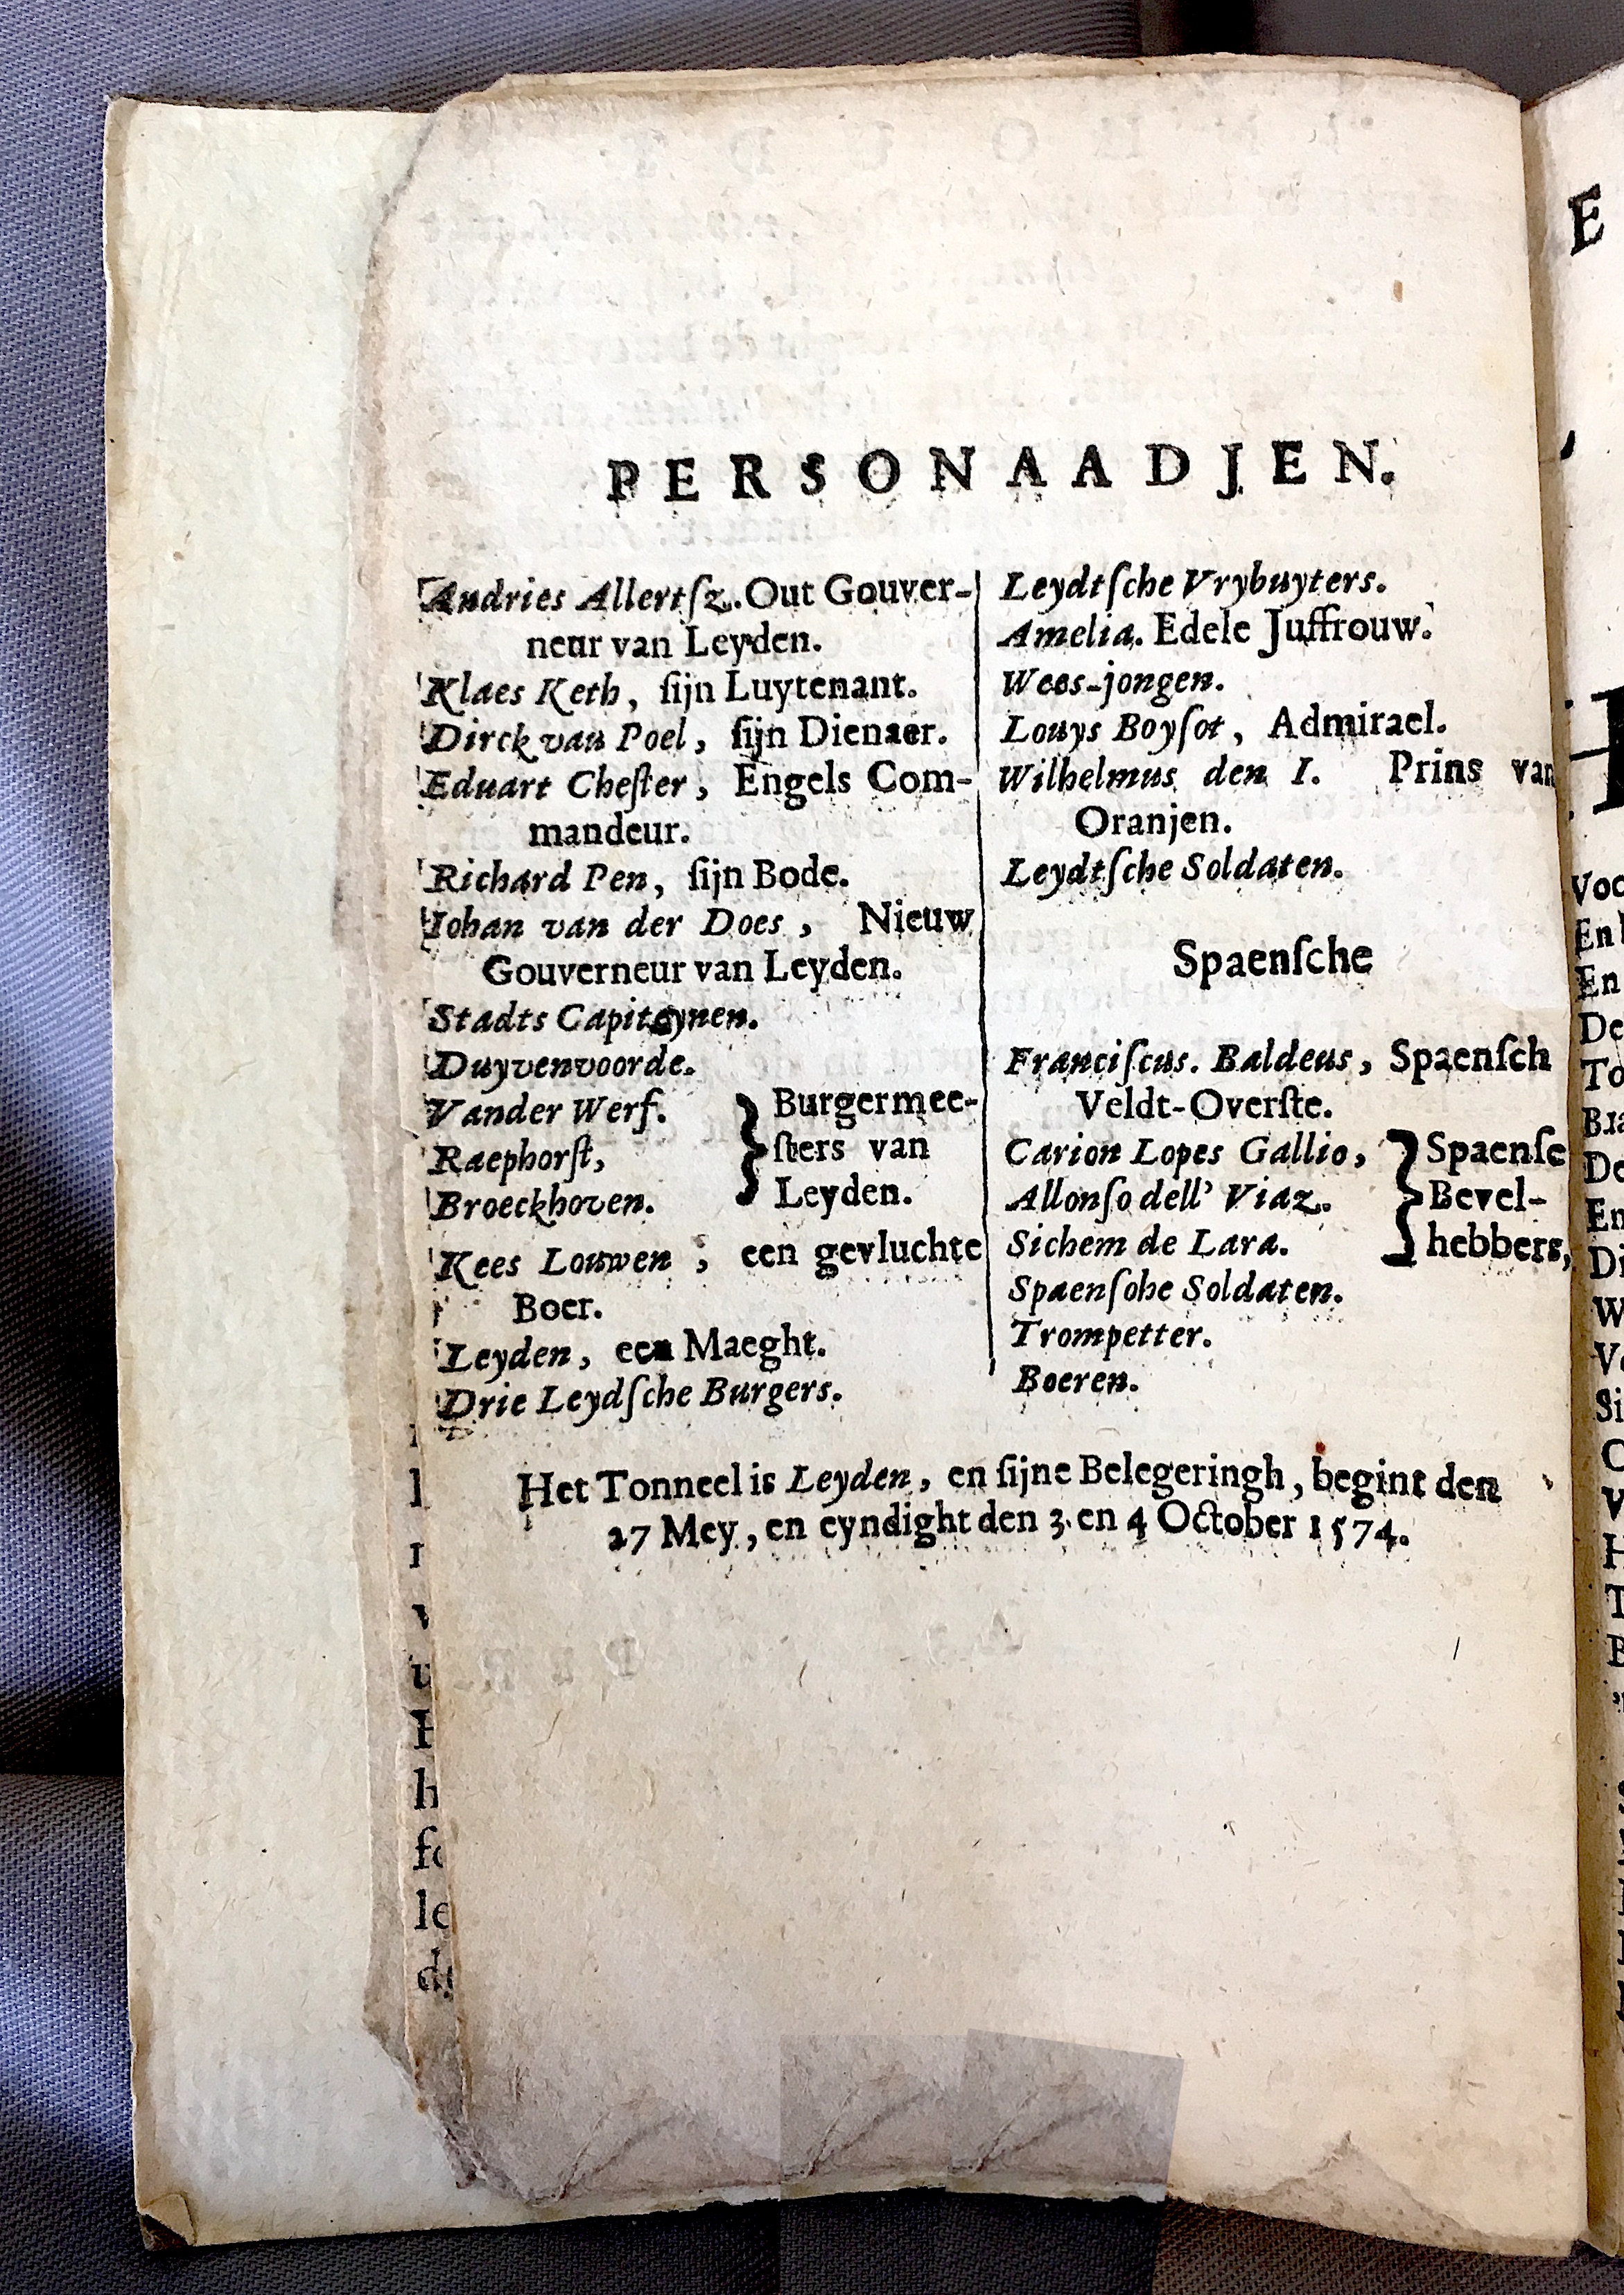 PERSONAADJEN.
Andries Allertſz. Out Gouver-
neur van Leyden.
Klaes Keth, ſijn Luytenant.
Dirck van Poel, ſijn Dienaer.
Eduart Cheſter, Engels Com-
mandeur.
Richard Pen, ſijn Bode.
Johan van der Does, Nieuw
Gouverneur van Leyden.
Stadts Capiteynen.
Duyvenvoorde.
Vander Werf.
Raephorſt,
Broeckhoven.
} Burgermee-
ſters van
Leyden.
Kees Louwen, een gevluchte
Boer.
Leyden, een Maeght.
Drie Leydſche Burgers.
Leydtſche Vrybuyters.
Amelia. Edele Juffrouw.
Wees-jongen.
Louys Boyſot, Admirael.
Wilhelmus den I. Prins van
Oranjen.
Leydtſche Soldaten.
Spaenſche
Franciſcus. Baldeus, Spaenſch
Veldt-Overſte.
Carion Lopes Gallio,
Allonſo dell' Viaz.
Sichem de Lara.
} Spaenſe
Bevel-
hebbers,
Spaenſohe Soldaten.
Trompetter.
Boeren.
Het Tonneel is Leyden, en ſijne Belegeringh, begint den
27 Mey, en eyndight den 3. en 4 October 1574.